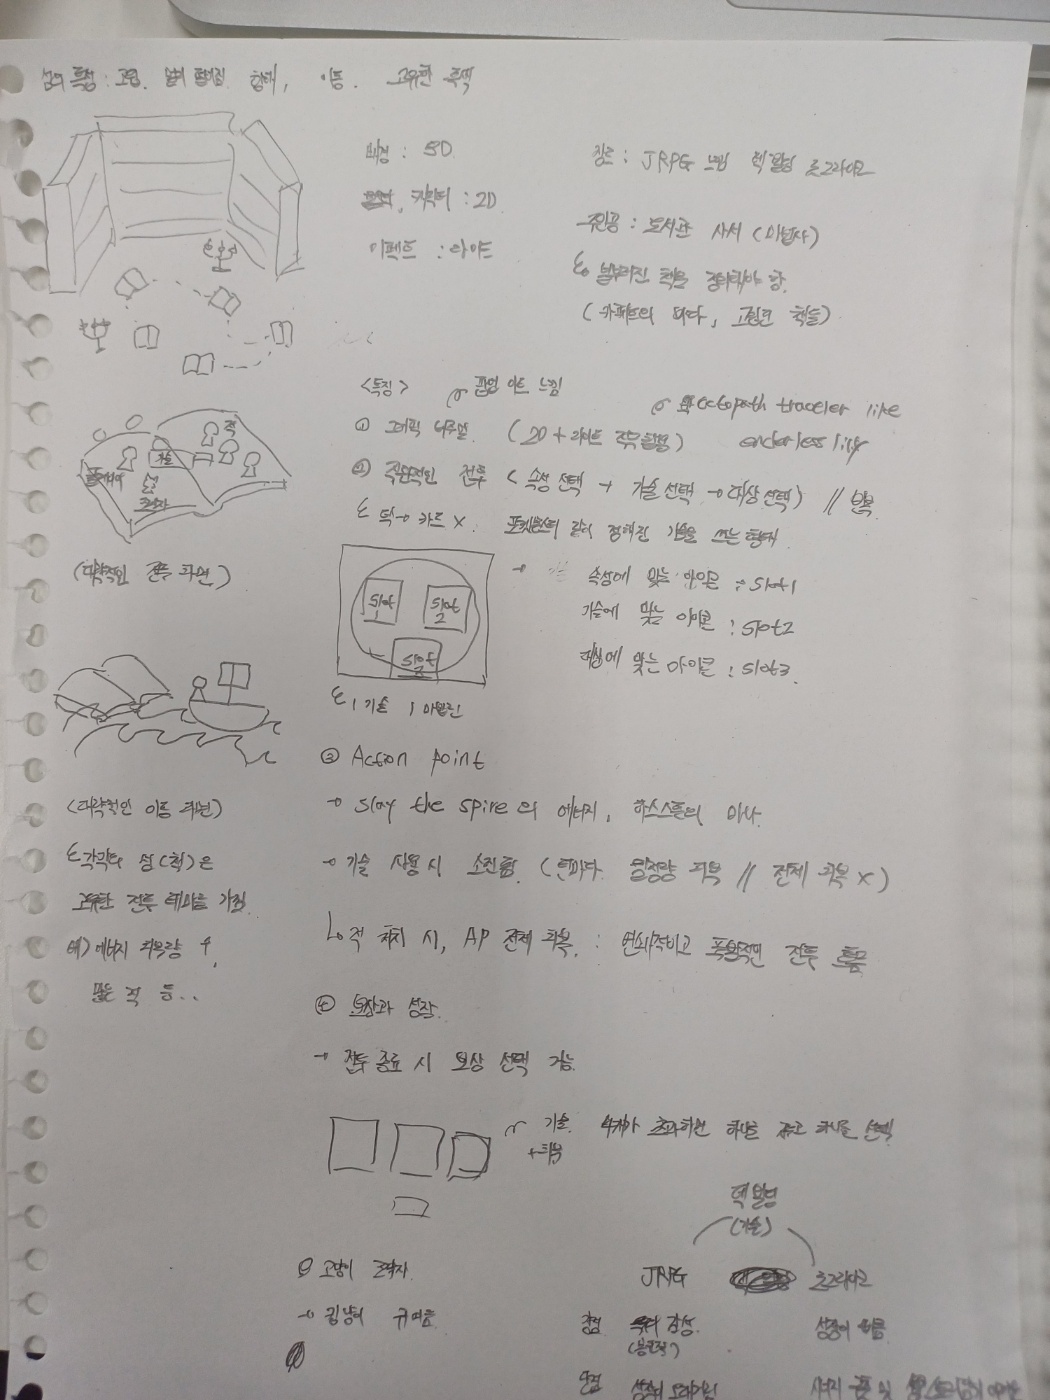 섬의 특성 : 고유. 형태, 이동. 고유한 룩백
배경 : 3D
캐릭터 : 2D
이펙트 : 라이트
장르 : JRPG 느낌 덱빌딩 로그라이크
주인공 : 도서관 사서 (마법사)
널부러진 책을 정리해야 함.
(카펫의 바다, 고립된 책들)
<특징>
팝업 아트 느낌
① 그래픽 비주얼. (2D + 라이트 적극 활용)
octopath traveler like
enderless like
② 직관적인 전투 (속성 선택 → 기술 선택 → 대상 선택) // 반복
덱 → 카드 X. 포켓몬스터 같이 정해진 기술을 쓰는 형태
플레이어
기술
적
조력자
(대략적인 전투 화면)
slot 1
slot 2
slot 3
→ 속성에 맞는 아이콘 : slot1
기술에 맞는 아이콘 : slot2
대상에 맞는 아이콘 : slot3.
1 기술 1 아이콘
③ Action point
→ Slay the spire의 에너지, 하스스톤의 마나.
→ 기술 사용 시 소진됨 (턴마다 일정량 회복 // 전체 회복 X)
↳ 적 처치 시, AP 전체 회복. : 연쇄적이고 폭발적인 전투 흐름
(대략적인 이동 화면)
각각의 섬(책)은
고유한 전투 테마를 가짐
예) 에너지 회복량 ↑,
많은 적 등..
④ 보상과 성장.
→ 전투 종료 시 보상 선택 가능
기술. 4개가 초과하면 하나를 하나를 선택
+ 회복
덱빌딩
(기술)
JRPG
로그라이크
장점
감성.
성장의
단점
⑤ 고양이 조력자
→ 귀여움